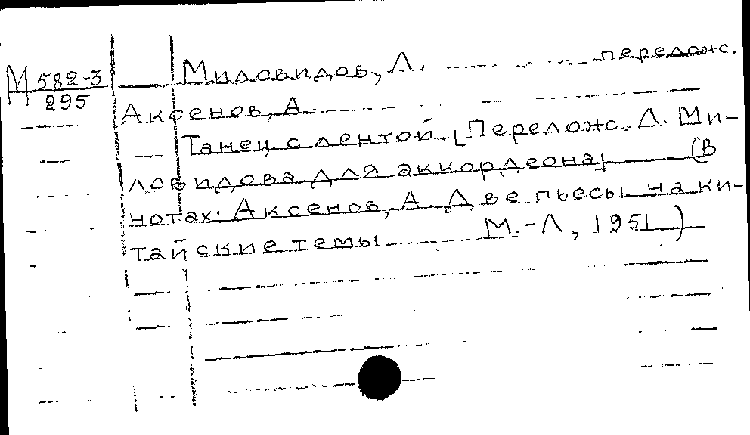 М 582-3
295
Миловидов, Л. перелож.
Аксенов, А.
Танец с лентой. [Перелож. Л. Ми-
ловидова для аккордеона] (В
нотах: Аксенов, А. Две пьесы на ки-
тайские темы М.-Л, 1951)